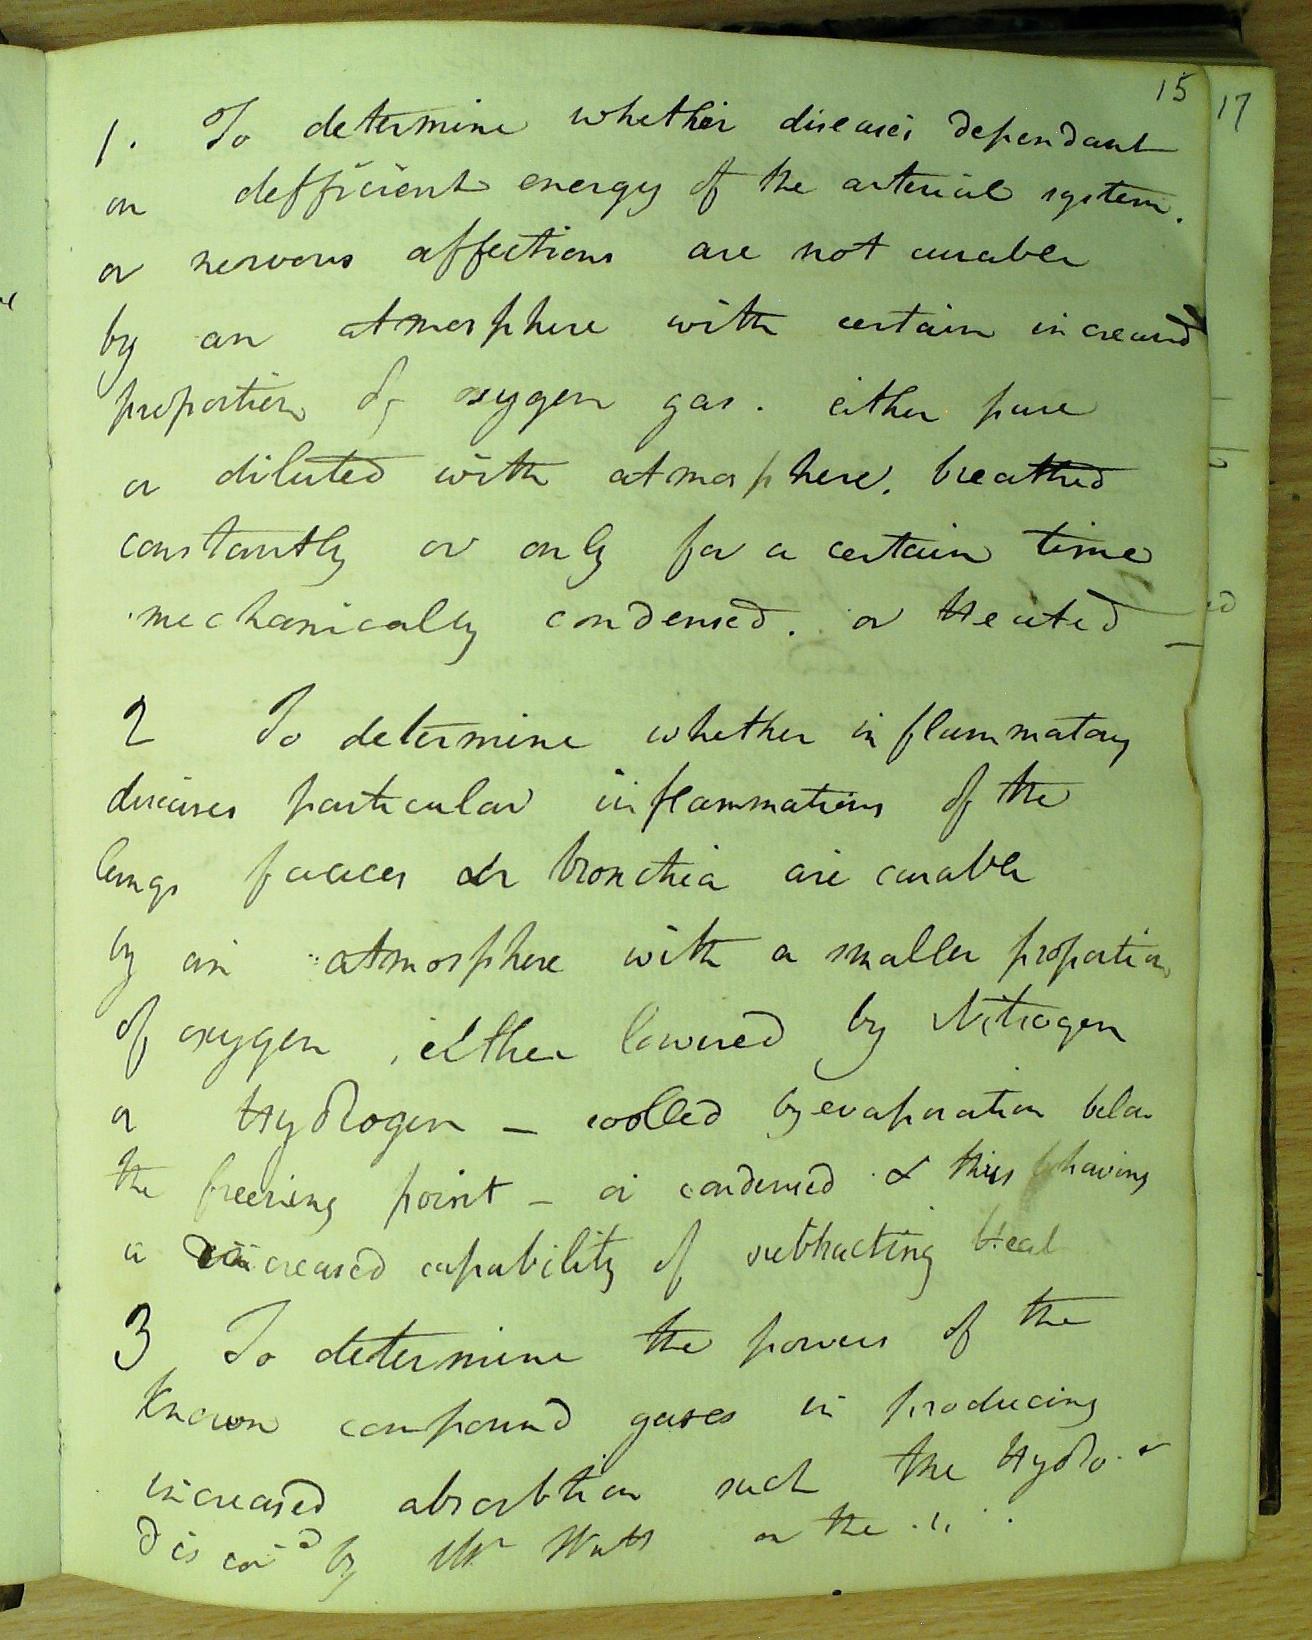 15
17
1. To determine whether diseases dependant
on defficient energy of the arterial system.
or nervous affections are not curable
by an atmosphere with certain increased
proportion of oxygen gas. either pure
or diluted with atmosphere. breathed
constantly or only for a certain time
mechanically condensed. or Heated —
2 To determine whether inflammatory
diseases particular inflammations of the
lungs fauces or bronchia are curable
by an atmosphere with a smaller proportion
of oxygen either lowered by Nitrogen
or Hydrogen — cooled by evaporation below
the freezing point — or condensed & thus having
a increased capability of subtracting Heat
3 To determine the powers of the
Known compound gases in producing
increased absorbtion such the Hydro.
discovd by Mr Watt or the